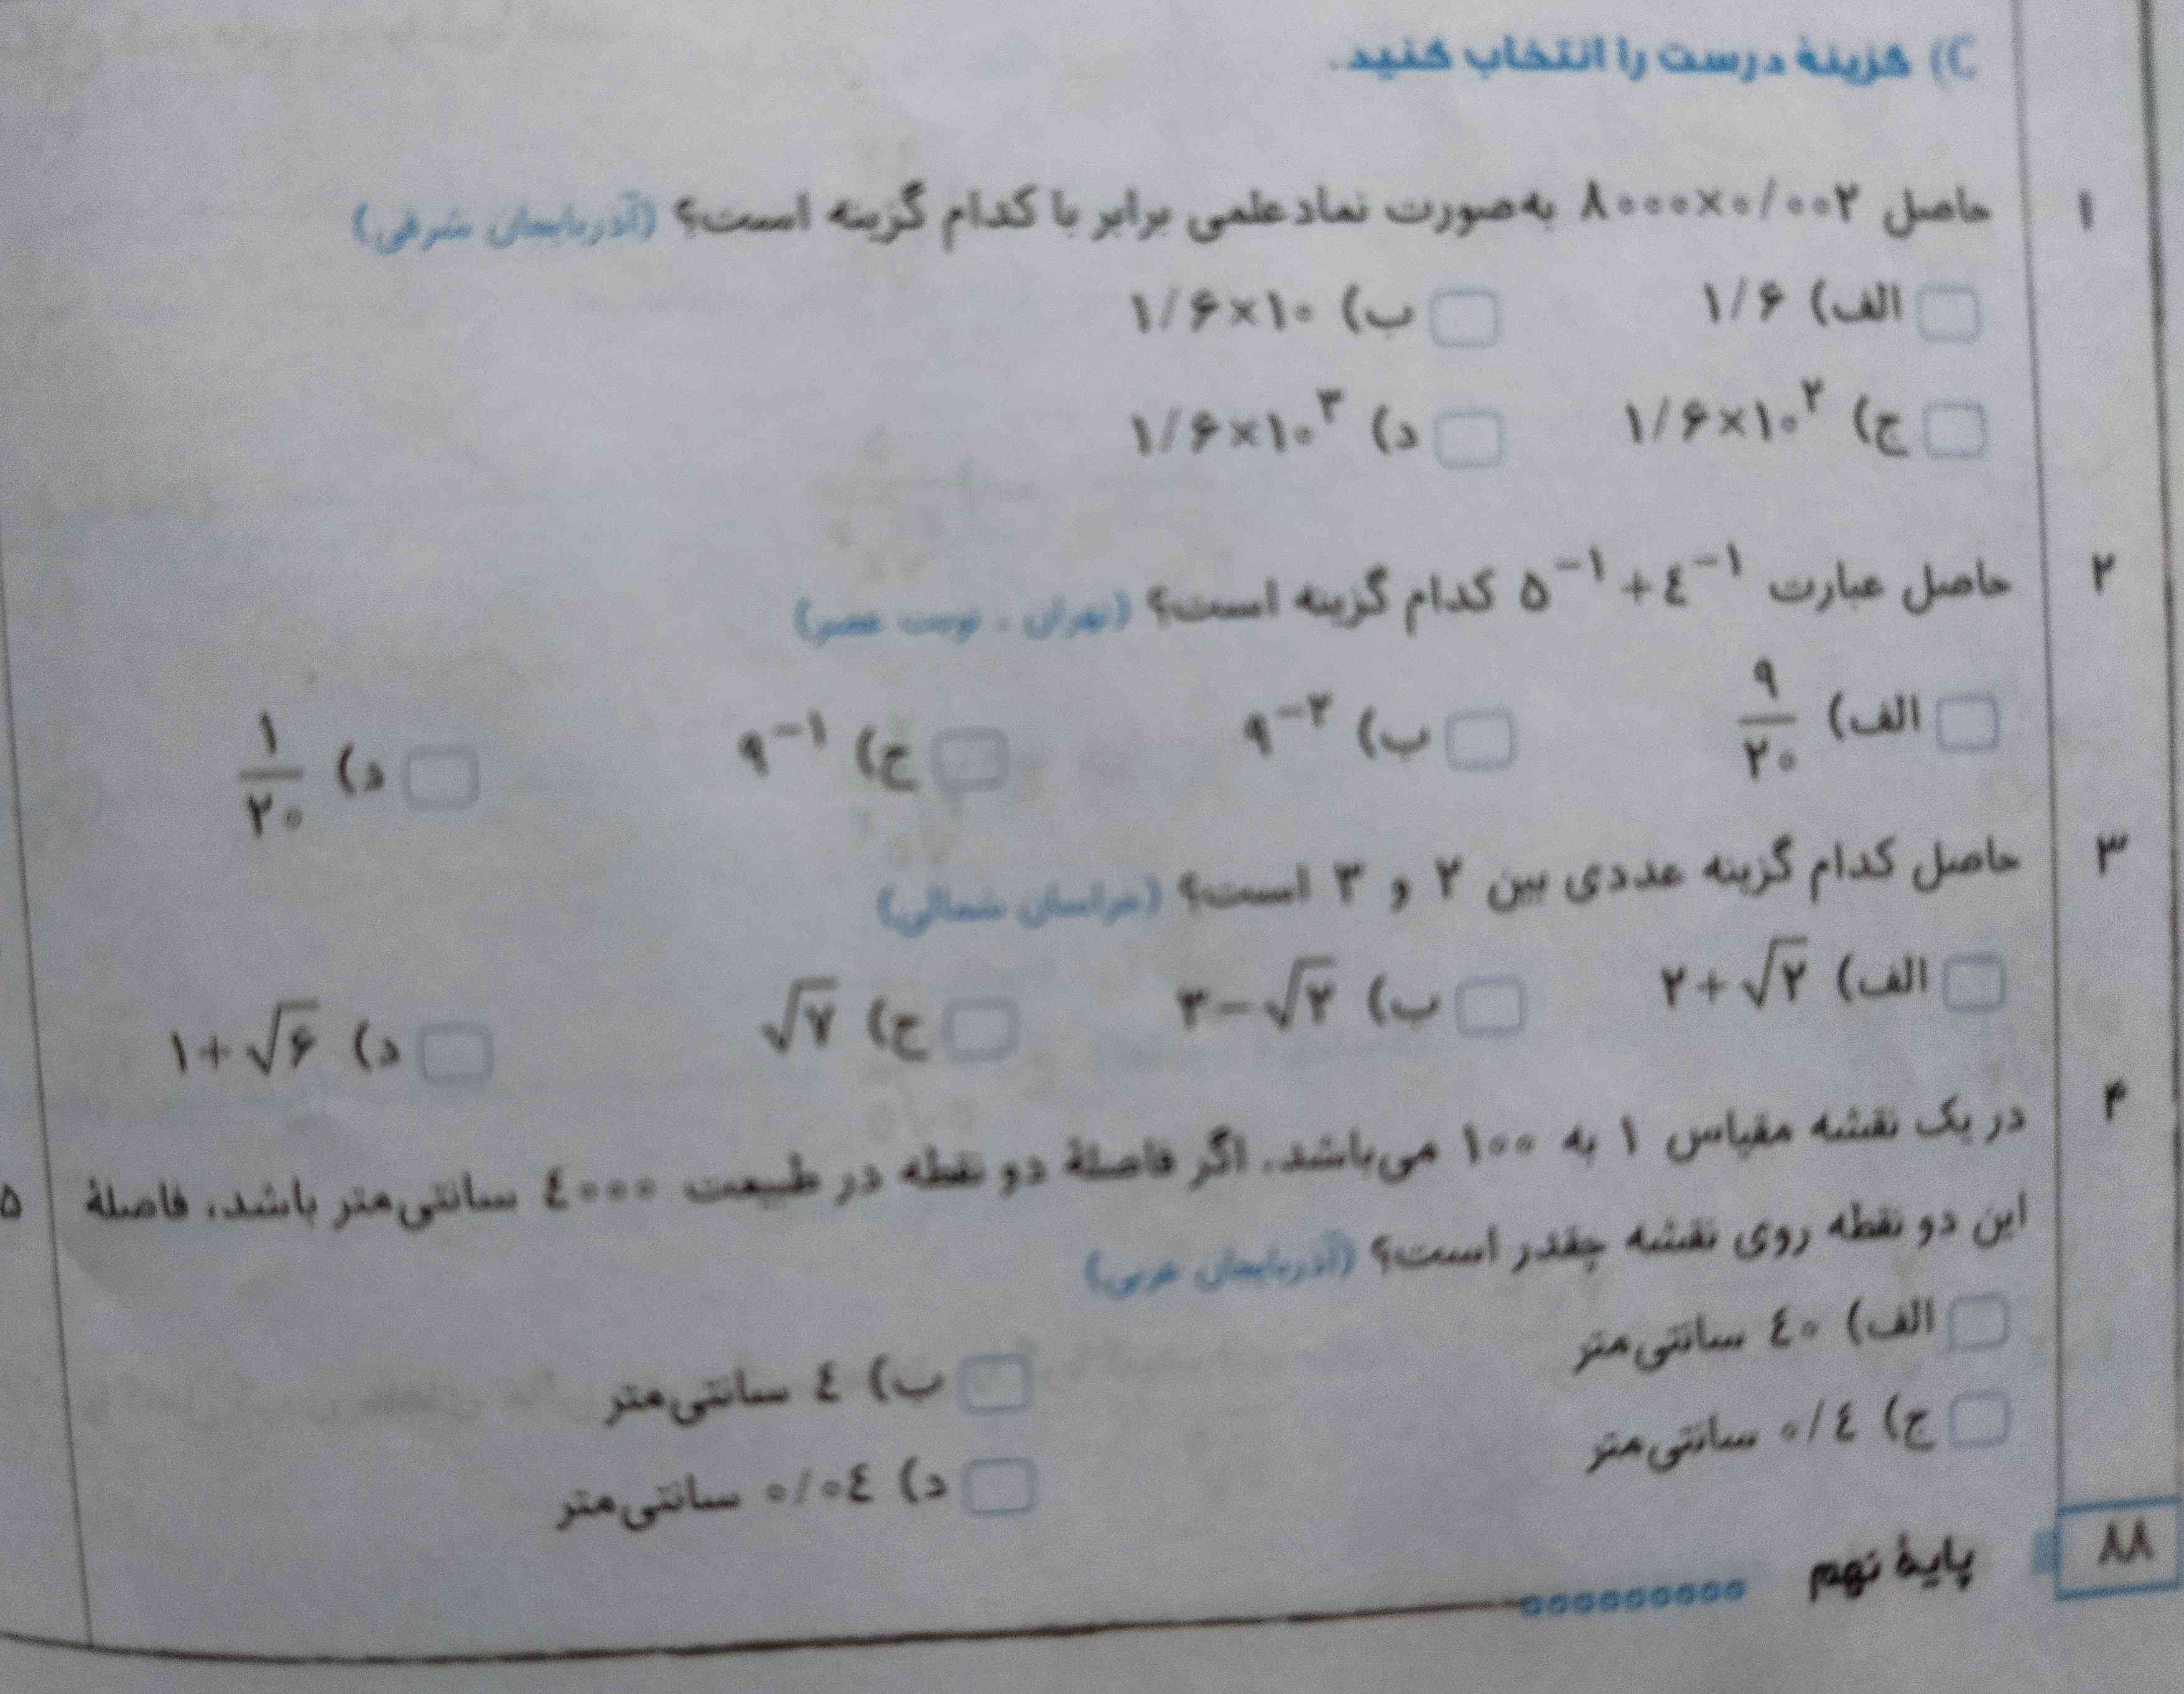 C) گزینهٔ درست را انتخاب کنید.
۱ حاصل ۸۰۰۰×۰/۰۰۲ به‌صورت نماد علمی برابر با کدام گزینه است؟ (آذربایجان شرقی)
الف) ۱/۶ ب) ۱/۶×۱۰
ج) ۱/۶×۱۰^۲ د) ۱/۶×۱۰^۳
۲ حاصل عبارت ۵^−۱+٤^−۱ کدام گزینه است؟ (تهران ـ نوبت عصر)
الف) ۹/۲۰ ب) ۹^−۲ ج) ۹^−۱ د) ۱/۲۰
۳ حاصل کدام گزینه عددی بین ۲ و ۳ است؟ (خراسان شمالی)
الف) ۲+√۲ ب) ۳−√۲ ج) √۷ د) ۱+√۶
۴ در یک نقشه مقیاس ۱ به ۱۰۰ می‌باشد. اگر فاصلهٔ دو نقطه در طبیعت ٤۰۰۰ سانتی‌متر باشد، فاصلهٔ
این دو نقطه روی نقشه چقدر است؟ (آذربایجان غربی)
الف) ٤۰ سانتی‌متر ب) ٤ سانتی‌متر
ج) ۰/٤ سانتی‌متر د) ۰/۰٤ سانتی‌متر
۵
۸۸ پایهٔ نهم